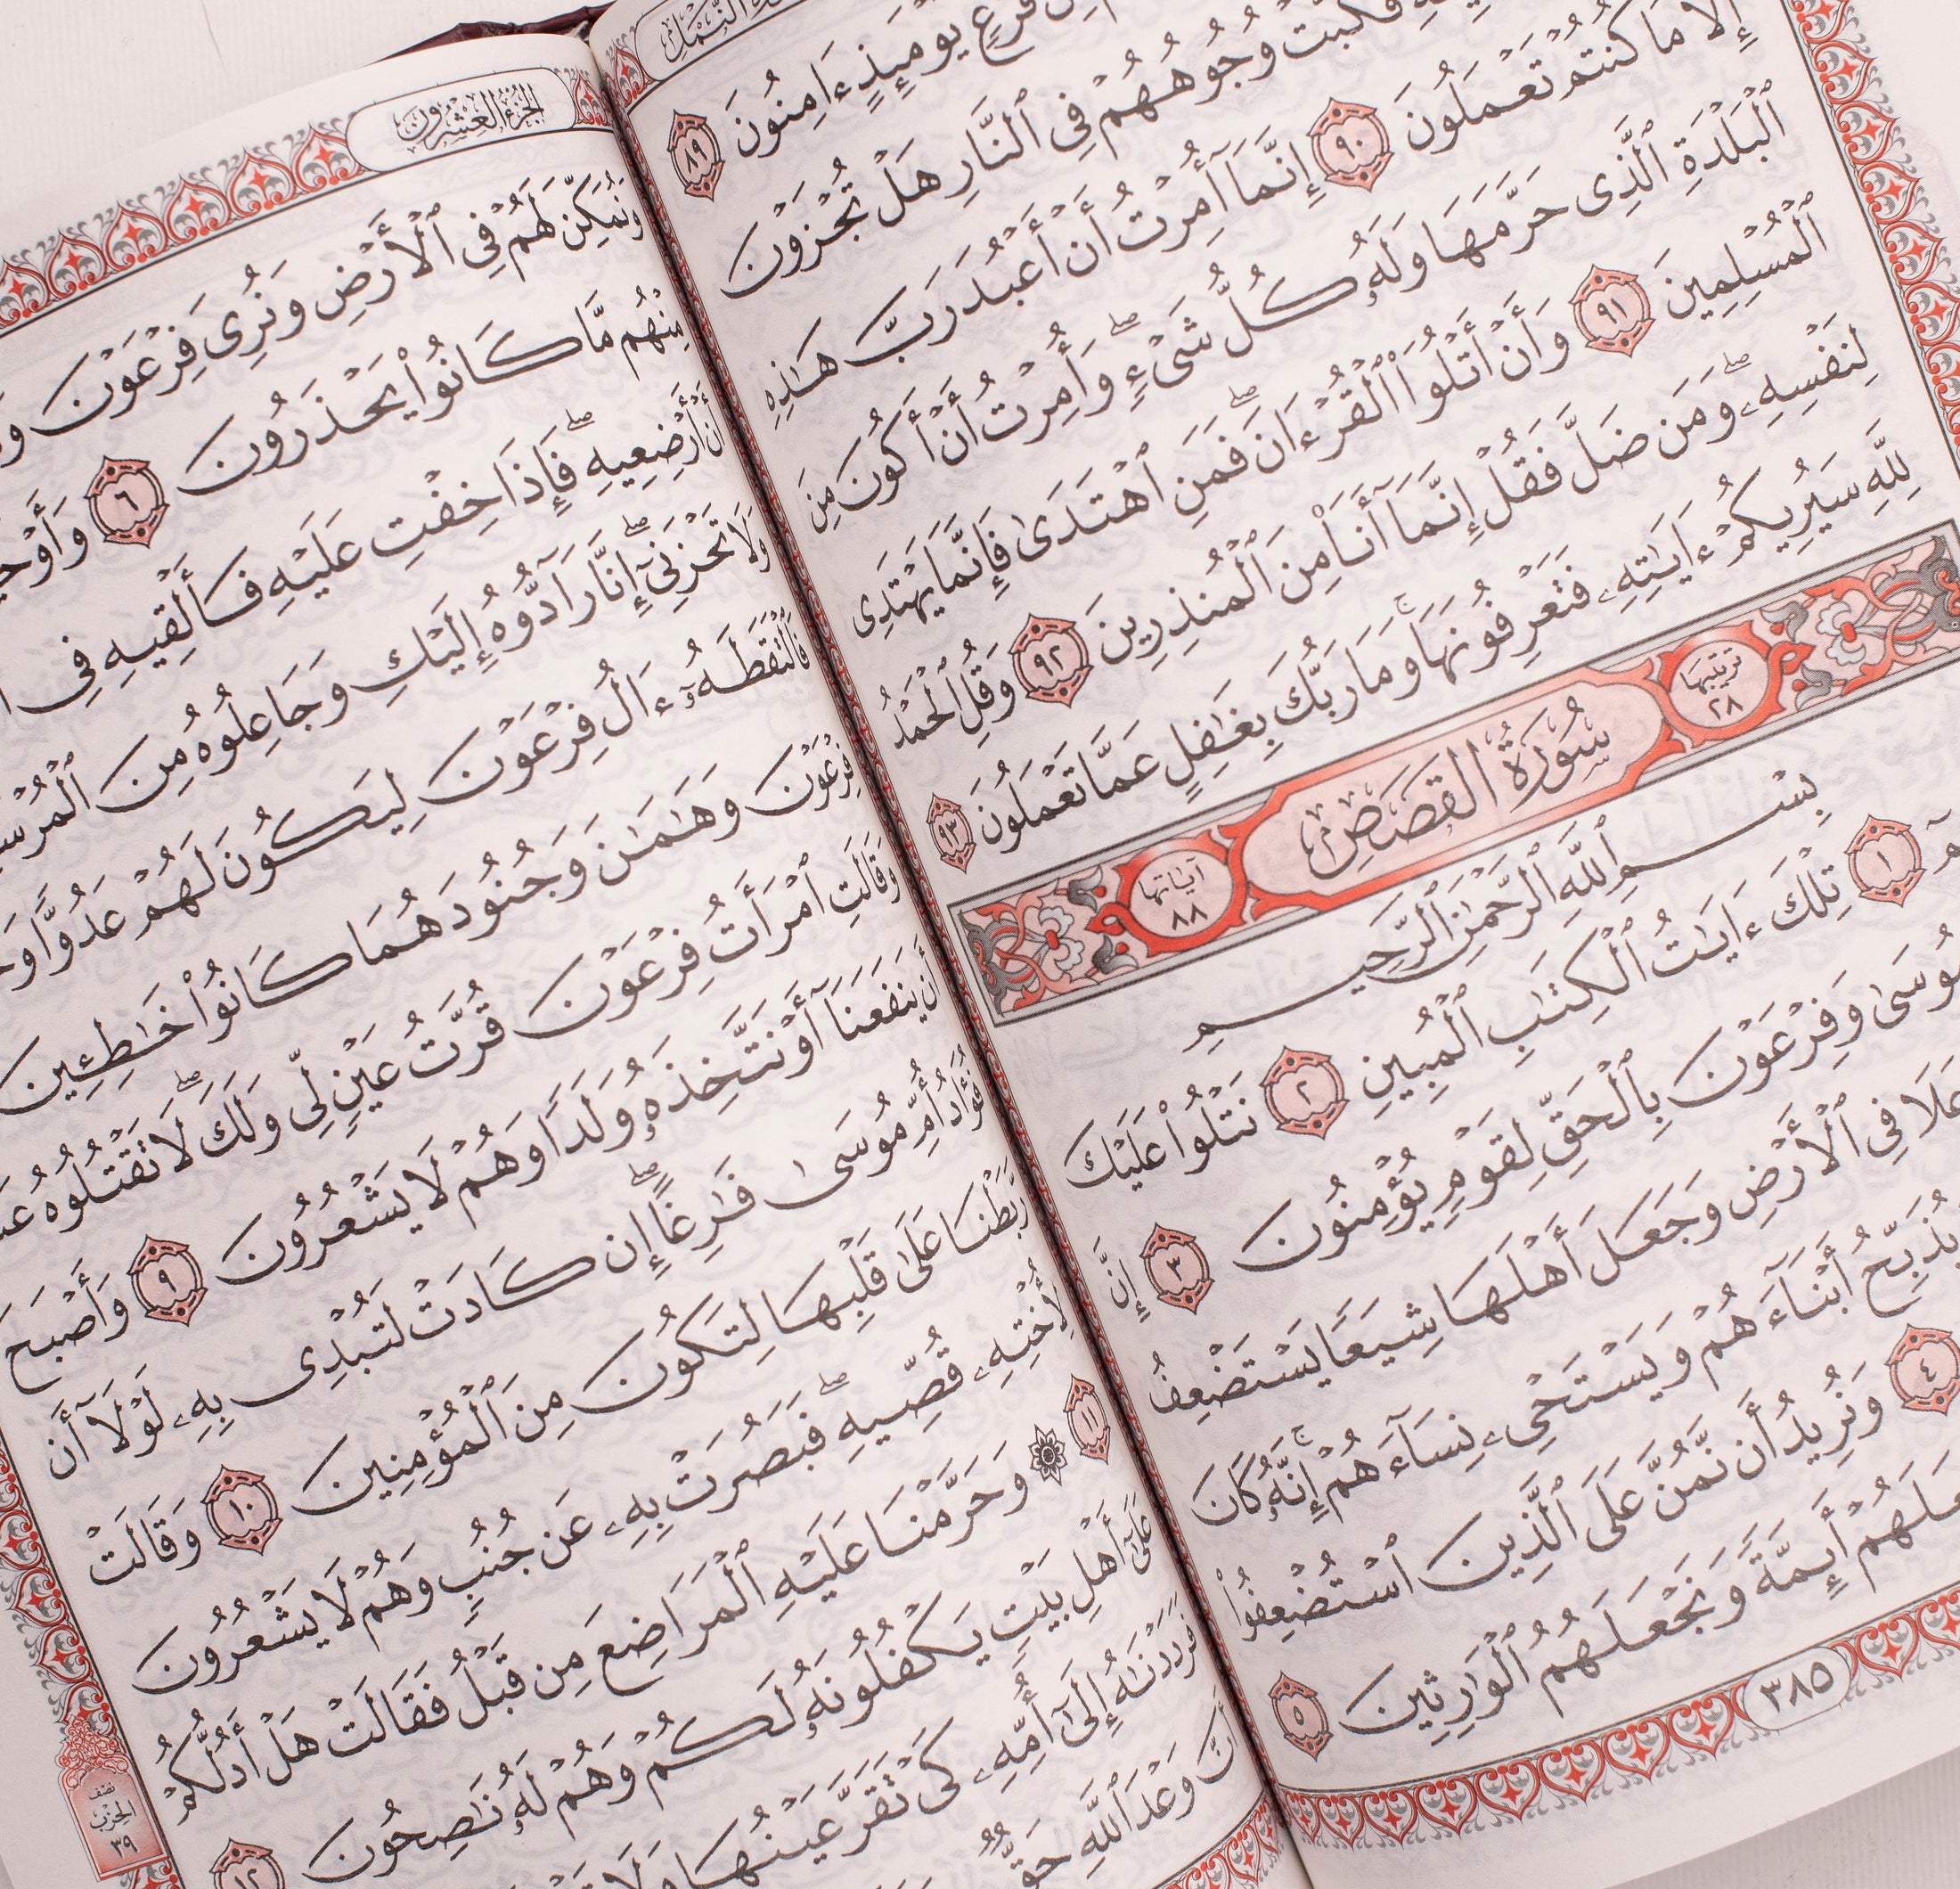 فَزَعٍ يَوْمَئِذٍ ءَامِنُونَ ٨٩
فَكُبَّتْ وُجُوهُهُمْ فِي ٱلنَّارِ هَلْ تُجْزَوْنَ
إِلَّا مَا كُنتُمْ تَعْمَلُونَ ٩٠ إِنَّمَآ أُمِرْتُ أَنْ أَعْبُدَ رَبَّ هَـٰذِهِ
ٱلْبَلْدَةِ ٱلَّذِى حَرَّمَهَا وَلَهُۥ كُلُّ شَىْءٍ ۖ وَأُمِرْتُ أَنْ أَكُونَ مِنَ
ٱلْمُسْلِمِينَ ٩١ وَأَنْ أَتْلُوَا۟ ٱلْقُرْءَانَ ۖ فَمَنِ ٱهْتَدَىٰ فَإِنَّمَا يَهْتَدِى
لِنَفْسِهِۦ ۖ وَمَن ضَلَّ فَقُلْ إِنَّمَآ أَنَا۠ مِنَ ٱلْمُنذِرِينَ ٩٢ وَقُلِ ٱلْحَمْدُ
لِلَّهِ سَيُرِيكُمْ ءَايَـٰتِهِۦ فَتَعْرِفُونَهَا ۚ وَمَا رَبُّكَ بِغَـٰفِلٍ عَمَّا تَعْمَلُونَ ٩٣
ترتيبها ٢٨ سُورَةُ القَصَصِ آياتها ٨٨
بِسْمِ ٱللَّهِ ٱلرَّحْمَـٰنِ ٱلرَّحِيمِ
١ تِلْكَ ءَايَـٰتُ ٱلْكِتَـٰبِ ٱلْمُبِينِ ٢ نَتْلُوا۟ عَلَيْكَ
مُوسَىٰ وَفِرْعَوْنَ بِٱلْحَقِّ لِقَوْمٍ يُؤْمِنُونَ ٣ إِنَّ
عَلَا فِى ٱلْأَرْضِ وَجَعَلَ أَهْلَهَا شِيَعًا يَسْتَضْعِفُ
يُذَبِّحُ أَبْنَآءَهُمْ وَيَسْتَحْىِۦ نِسَآءَهُمْ ۚ إِنَّهُۥ كَانَ
٤ وَنُرِيدُ أَن نَّمُنَّ عَلَى ٱلَّذِينَ ٱسْتُضْعِفُوا۟
أَئِمَّةً وَنَجْعَلَهُمُ ٱلْوَٰرِثِينَ ٥
٣٨٥
الجزء العشرون
وَنُمَكِّنَ لَهُمْ فِى ٱلْأَرْضِ وَنُرِىَ فِرْعَوْنَ
مِنْهُم مَّا كَانُوا۟ يَحْذَرُونَ ٦
أَنْ أَرْضِعِيهِ ۖ فَإِذَا خِفْتِ عَلَيْهِ فَأَلْقِيهِ فِى
وَلَا تَحْزَنِىٓ ۖ إِنَّا رَآدُّوهُ إِلَيْكِ وَجَاعِلُوهُ مِنَ
فَٱلْتَقَطَهُۥٓ ءَالُ فِرْعَوْنَ لِيَكُونَ لَهُمْ عَدُوًّا
فِرْعَوْنَ وَهَـٰمَـٰنَ وَجُنُودَهُمَا كَانُوا۟ خَـٰطِـِٔينَ
وَقَالَتِ ٱمْرَأَتُ فِرْعَوْنَ قُرَّتُ عَيْنٍ لِّى وَلَكَ ۖ لَا تَقْتُلُوهُ
أَن يَنفَعَنَآ أَوْ نَتَّخِذَهُۥ وَلَدًا وَهُمْ لَا يَشْعُرُونَ ٩ وَأَصْبَحَ
فُؤَادُ أُمِّ مُوسَىٰ فَـٰرِغًا ۖ إِن كَادَتْ لَتُبْدِى بِهِۦ لَوْلَآ أَن
رَّبَطْنَا عَلَىٰ قَلْبِهَا لِتَكُونَ مِنَ ٱلْمُؤْمِنِينَ ١٠ وَقَالَتْ
لِأُخْتِهِۦ قُصِّيهِ ۖ فَبَصُرَتْ بِهِۦ عَن جُنُبٍ وَهُمْ لَا يَشْعُرُونَ
١١ ۞ وَحَرَّمْنَا عَلَيْهِ ٱلْمَرَاضِعَ مِن قَبْلُ فَقَالَتْ هَلْ أَدُلُّكُمْ
عَلَىٰٓ أَهْلِ بَيْتٍ يَكْفُلُونَهُۥ لَكُمْ وَهُمْ لَهُۥ نَـٰصِحُونَ ١٢
فَرَدَدْنَـٰهُ إِلَىٰٓ أُمِّهِۦ كَىْ تَقَرَّ عَيْنُهَا
وَعْدَ ٱللَّهِ حَقٌّ
نصف
الحزب
٣٩